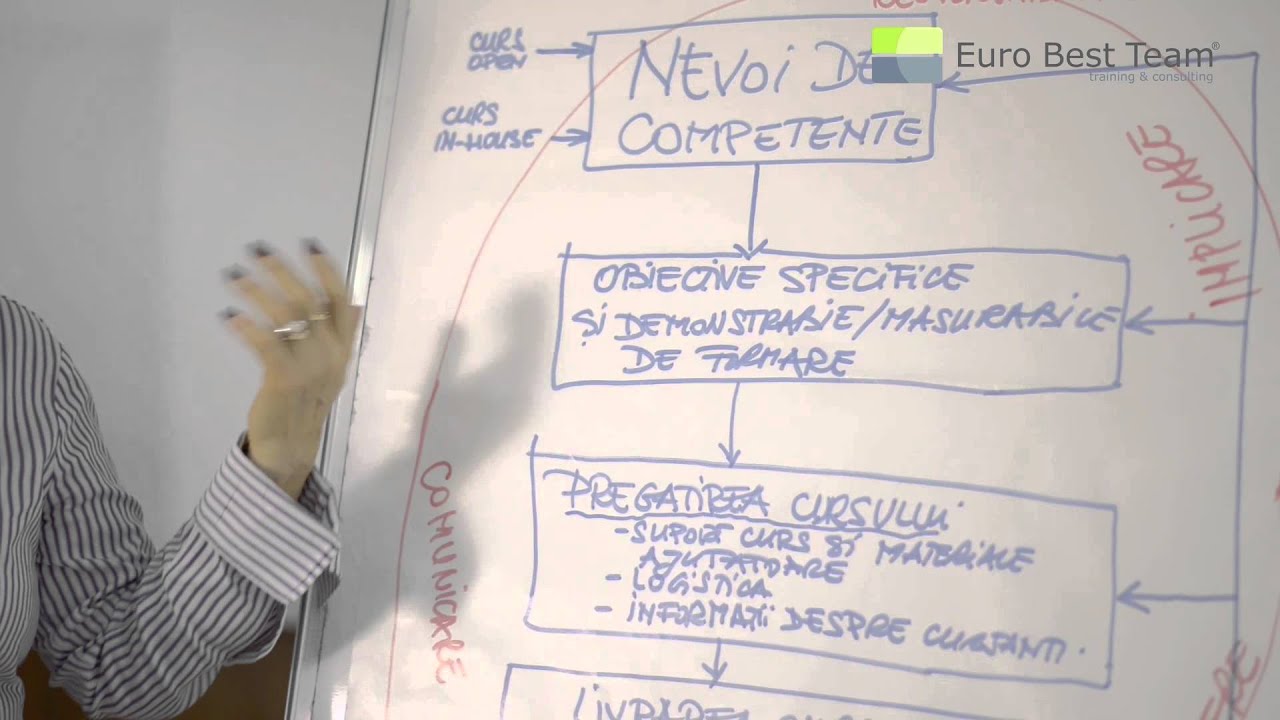 CURS
OPEN
CURS
IN-HOUSE
NEVOI DE
COMPETENTE
Euro Best Team®
training & consulting
IMPLICARE
OBIECIVE SPECIFICE
ȘI DEMONSTRABILE/MASURABILE
DE FORMARE
COMUNICARE
PREGATIREA CURSULUI
- SUPORT CURS SI MATERIALE
AJUTATOARE
- LOGISTICA
- INFORMATII DESPRE CURSANTI.
LIVRAREA